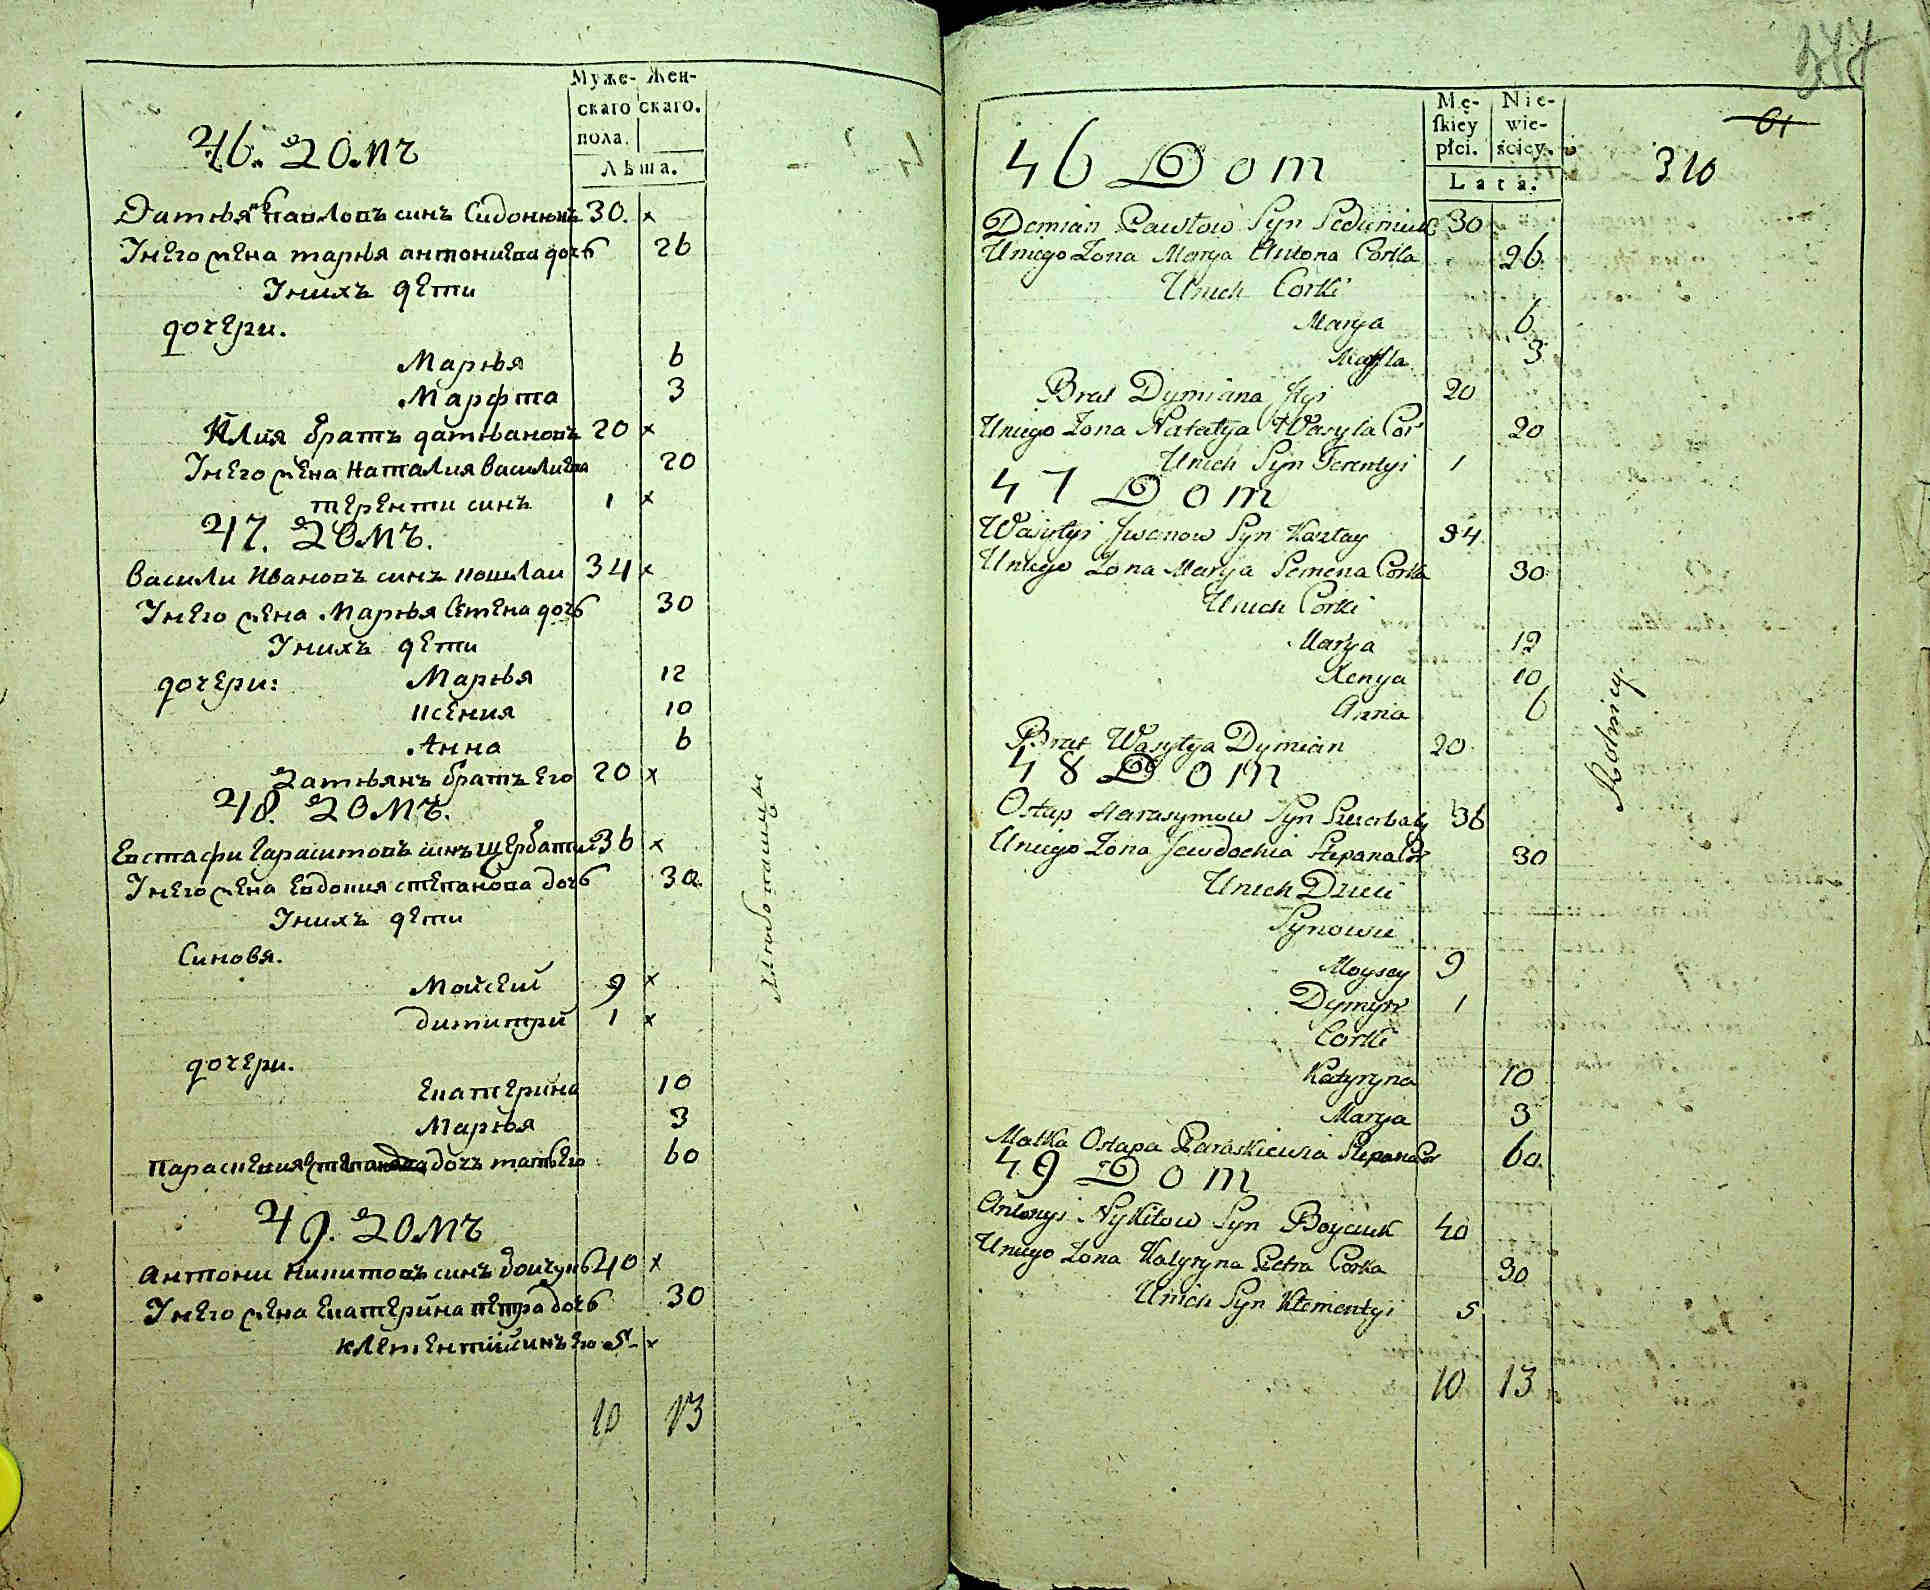 Муже- Жен-
скаго скаго.
пола.
Лѣта.
46. домъ
Дамнѣянъ павловъ синъ Сидонюкъ 30. x
Унего жена марья антониева дочъ 26
Унихъ дети
дочери.
Марья 6
Марфта 3
Илия братъ дамнѣановъ 20 x
Унего жена наталия василиева 20
теренти синъ 1 x
47. домъ.
васили ивановъ синъ 34 x
Унего жена Марья семена дочъ 30
Унихъ дети
дочери: Марья 12
ксения 10
Анна 6
Дамнѣянъ братъ его 20 x
48. домъ.
Евстафи гарасимовъ синъ щербатий 36 x
Унего жена евдокия степанова дочъ 30.
Унихъ дети
Синовя.
Мойсей 9 x
димитрй 1 x
дочери.
екатерина 10
Марья 3
параскевия дочъ матъ его 60
49. домъ
антони никитовъ синъ бойчукъ 40 x
Унего жена екатерина петра дочъ 30
клементий синъ его 5 x
10 13
377
Mę- Nie-
skiey wie-
płci. ściey.
Lata.
61
310
46 Dom
Demian Pawłow Syn Seduniuk 30
Uniego Zona Marya Antona Corka 26
Unich Corki
Marya 6
3
Brat Dymiana Ilyi 20
Uniego Zona Natalya Wasyla Cor 20
Unich Syn Terentyi 1
47 Dom
Wasylyi Jwanow Syn 34
Uniego Zona Marya Semena Corka 30
Unich Corki
Marya 12
Xenya 10
Anna 6
Brat Wasylya Dymian 20
48 Dom
Ostap Harasymow Syn Szczerbaty 36
Uniego Zona Jewdochia Stepana Cor 30
Unich Dzieci
Synowie
Moysey 9
Dymytr 1
Corki
Katyryna 10
Marya 3
Matka Ostapa Paraskiewia Stepana Cor 60.
49 Dom
Antonyi Nykitow Syn Boyczuk 40
Uniego Zona Katyryna Pietra Corka 30
Unich Syn Klementyi 5
10 13